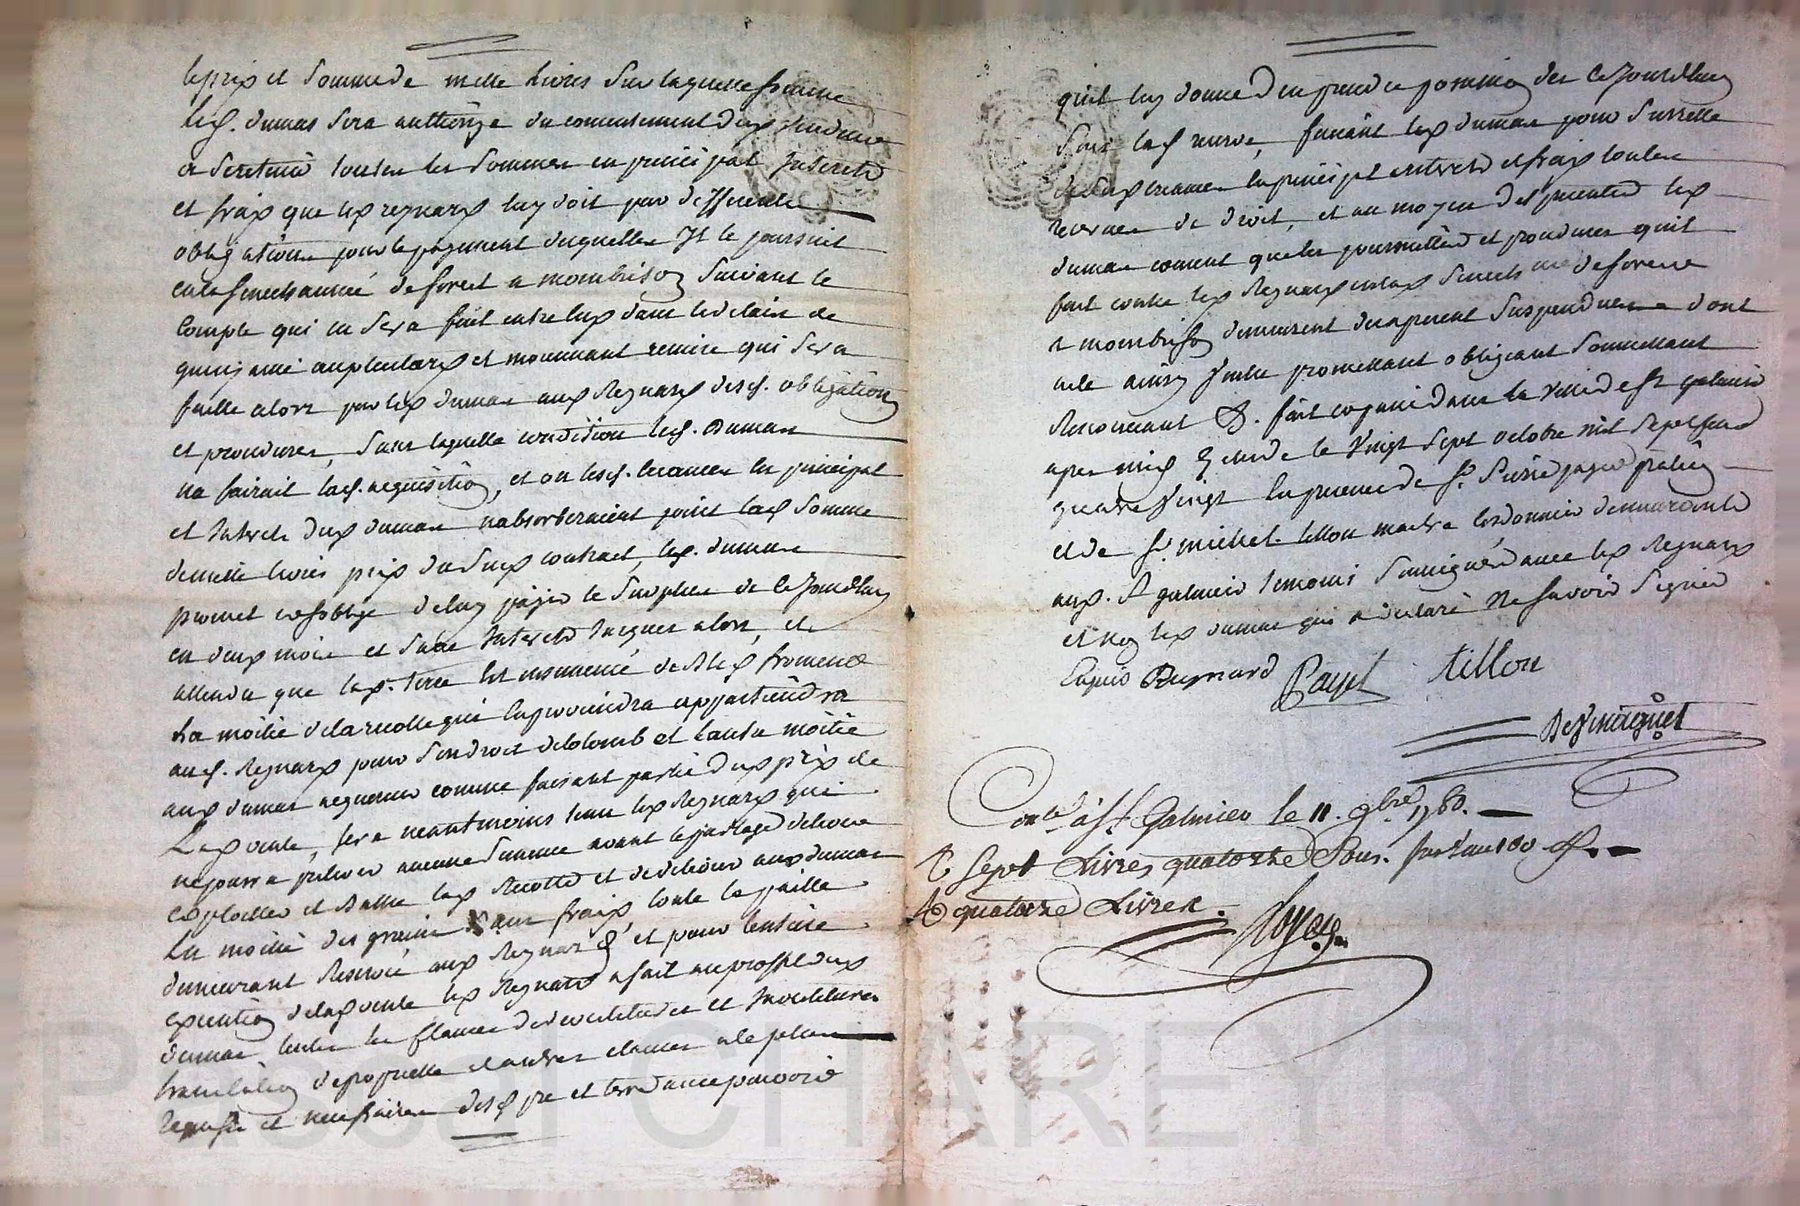 le prix et somme de mille livres sur laquelle somme
led. dumas sera authorizé du consentement dud. vendeur
de se retenir toutes les sommes en principal Interets
et fraix que led reynard luy doit par differentes
obligations pour le payement desquelles Il le poursuit
en la senechaussé de forest a mombrison suivant le
Compte qui en sera fait entre eux dans le delain de
et moyennant remise qui sera
faitte alors par led dumas aud Reynard desd. obligations
et procedures, sans laquelle condition led. Dumas
ne fairait lad. acquisition, et ou lesd. creances en principal
et Interets dud dumas n'absorberoient point lad somme
de mille livres prix du dud contract, led. dumas
promet et s'oblige de luy payer le surplus de ce jourdhuy
en deux mois et sans Interets jusques alors, et
attendu que lad. terre est ensemencé de bled froment
La moitié de la recolte qui en proviendra appartiendra
aud. Reynard pour son droit de colomb et l'autre moitié
aud dumas acquereur comme faisant partie dud prix de
Lad vente, sera neantmoins tenu led Reynard qui
ne pourra prelever aucune semence avant le partage d'icelle
exploitter et battre lad Recolte et de delivrer aud dumas
La moitié des grains sans fraix, toute la paille
demeurant Reservée aud Reynard, et pour l'entiere
execution de lad vente led Reynard a fait au proffit dud
dumas toutes les clauses de
translation de proprietté et autres clauses a le plus
requises et necessaires desd pre et terre avec pouvoir
qu'il luy donne d'en prendre possession des ce jourdhuy
sous lad reserve, faisant led dumas pour surretté
de sesd creances en principal interets et fraix toutes
reserves de droit, et au moyen des presentes led
dumas consent que les poursuittes et procedures qu'il
fait contre led Reynard en lad senechaussé de forest
a mombrison demeurent des a present suspendues dont
acte ainsy voulu promettant obligeant soumettant
Renonceant &. fait et passé dans la ville de st galmier
apres midy Etude le vingt sept octobre mil sept cent
quatre vingt en presence de sr. pierre payet praticien
et de sr michel tillon maitre cordonnier demeurants
aud. St galmier temoins soussignés avec led Reynard
et non led dumas qui a declaré ne savoir signer
Reynard Payet tillon
Desvinaignet
Contlé à St Galmier le 11. 9bre 1780.
R Sept Livres quatorze Sous.
quatorze Livres.